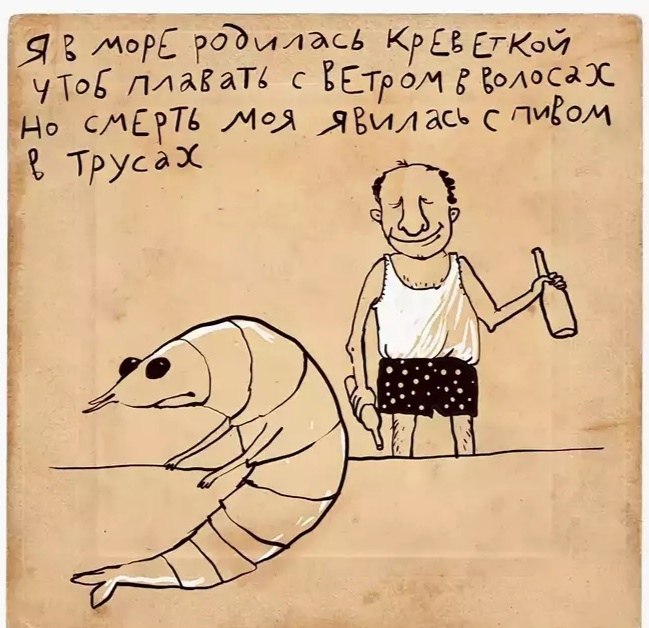 Я в море родилась креветкой
чтоб плавать с ветром в волосах
но смерть моя явилась с пивом
в трусах